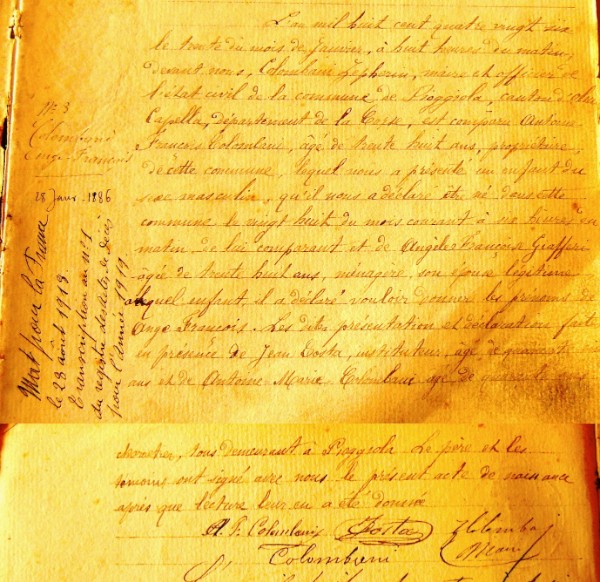 N° 3
Colombani
Ange-François
28 Janv. 1886
Mort pour la France
le 28 août 1918
Transcription au N° 1
du registre des actes de décès
pour l'année 1919.
L'an mil huit cent quatre vingt six
le trente du mois de Janvier, à huit heures du matin,
devant nous, Colombani maire et officier de
l'état civil de la commune de Pioggiola, canton d'
Capella, département de la Corse, est comparu Antoine
François Colombani, âgé de trente huit ans, propriétaire,
de cette commune, lequel nous a présenté un enfant du
sexe masculin, qu'il nous a déclaré être né dans cette
commune le vingt huit du mois courant à heures du
matin, de lui comparant et de Angèle Françoise Giafferi
âgée de trente huit ans, ménagère, son épouse légitime
lequel enfant, il a déclaré vouloir donner les prénoms de
Ange François. Les dites présentation et déclaration faite
en présence de Jean Costa, instituteur, âgé de quarante
ans et de Antoine-Marie Colombani âgé de quarante
tous demeurant à Pioggiola. Le père et les
témoins ont signé avec nous le présent acte de naissance
après que lecture leur en a été donnée
A. F. Colombani Costa
Colombani